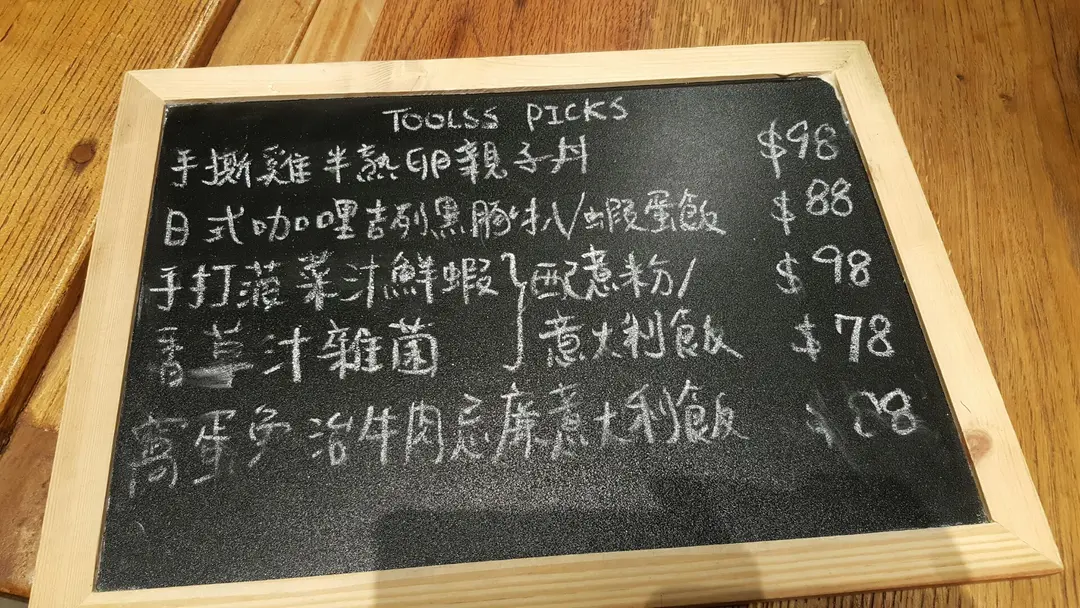 TOOLSS PICKS
手撕雞半熟卵親子丼 $98
日式咖哩吉列黑豚扒/蝦蛋飯 $88
手打菠菜汁鮮蝦 }配意粉/ $98
香草汁雜菌 }意大利飯 $78
窩蛋免治牛肉忌廉意大利飯